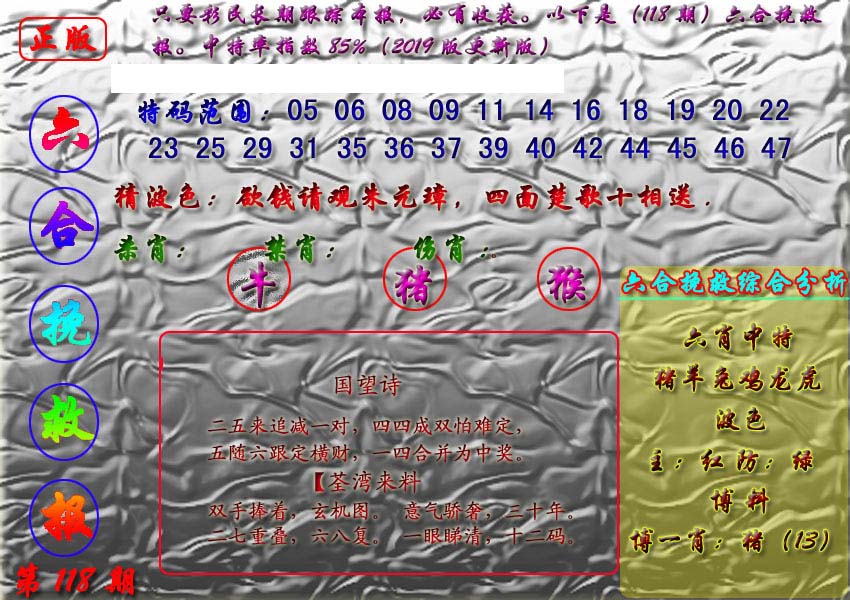 正版
只要彩民长期跟踪本报，必有收获。以下是（118期）六合挽救
报。中特率指数85%（2019版更新版）
六
合
挽
救
报
第118期
特码范围：05 06 08 09 11 14 16 18 19 20 22
23 25 29 31 35 36 37 39 40 42 44 45 46 47
猜波色：欲钱请观朱元璋，四面楚歌十相送.
杀肖： 禁肖： 伤肖：。
牛 猪 猴
国望诗
二五来追减一对，四四成双怕难定，
五随六跟定横财，一四合并为中奖。
【荃湾来料
双手捧着，玄机图。 意气骄奢，三十年。
二七重叠，六八复。 一眼睇清，十二码。
六合挽救综合分析
六肖中特
猪羊兔鸡龙虎
波色
主：红防：绿
博料
博一肖：猪（13）